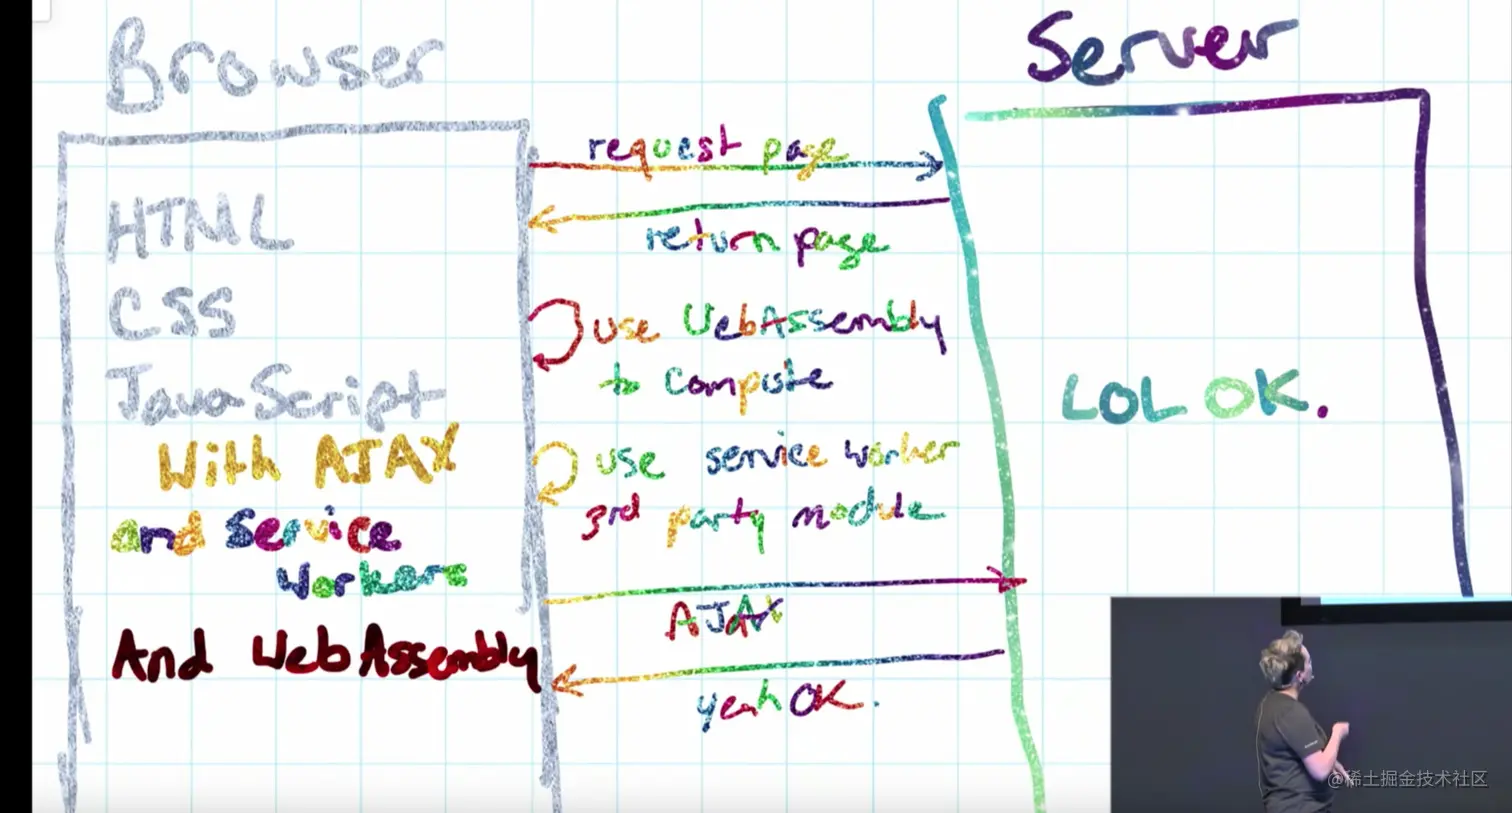 Browser
Server
request page
return page
HTML
CSS
JavaScript
With AJAX
and service
workers
And WebAssembly
use WebAssembly
to compute
use service worker
3rd party module
AJAX
yeah OK.
LOL OK.
@稀土掘金技术社区